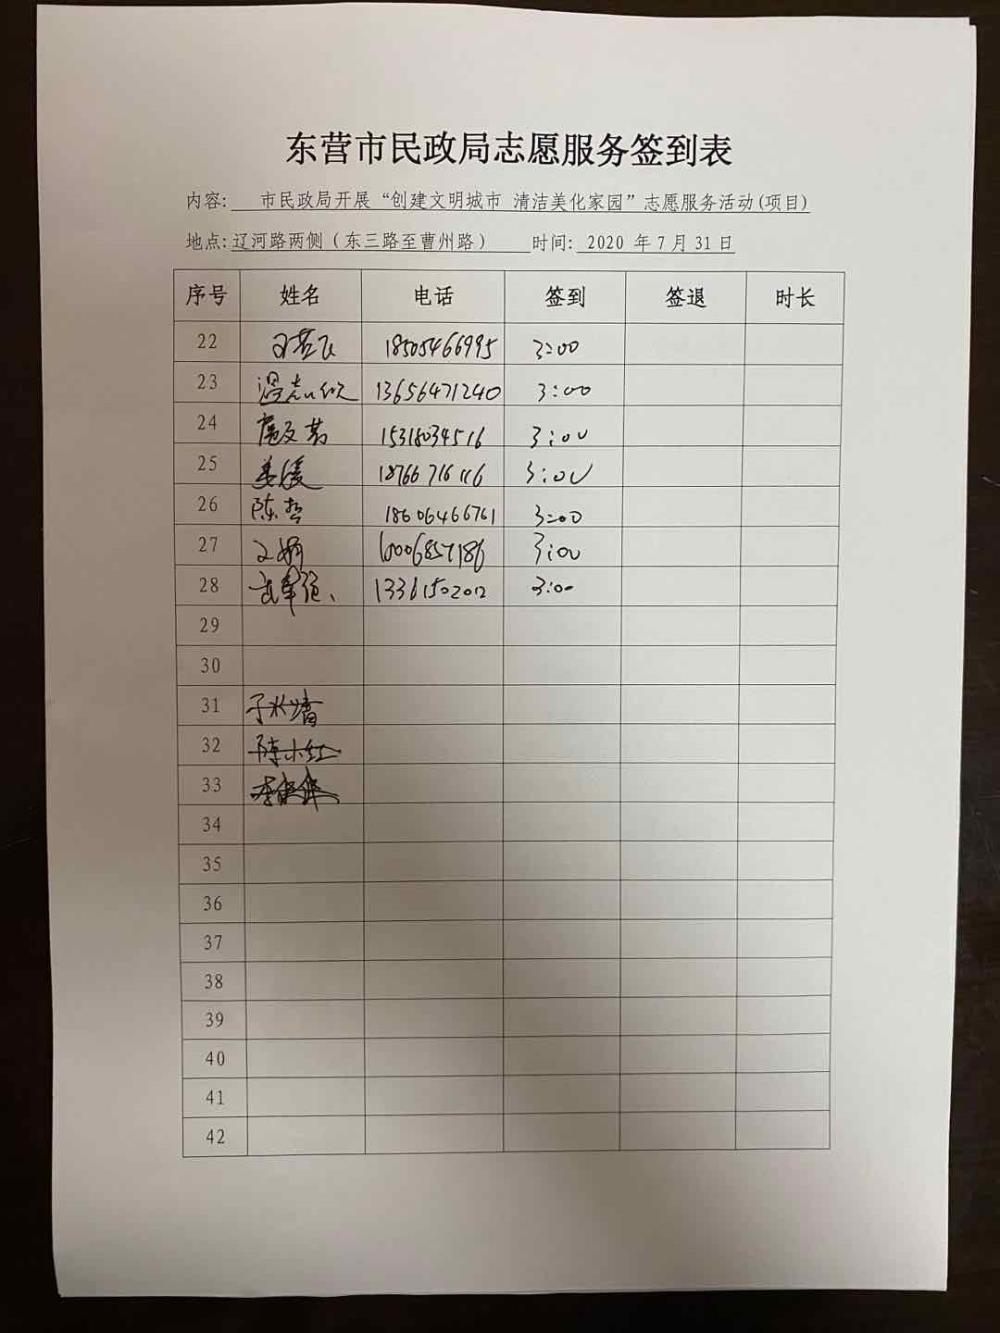 东营市民政局志愿服务签到表
内容: 市民政局开展“创建文明城市 清洁美化家园”志愿服务活动(项目)
地点:辽河路两侧(东三路至曹州路) 时间: 2020 年 7 月 31 日
序号 姓名 电话 签到 签退 时长
22 18505466995 3:00
23 13656471240 3:00
24 15318034516 3:00
25 姜媛 18766716116 3:00
26 陈哲 18606466761 3:00
27 3:00
28 13361502012 3:00
29
30
31
32 陈小红
33
34
35
36
37
38
39
40
41
42